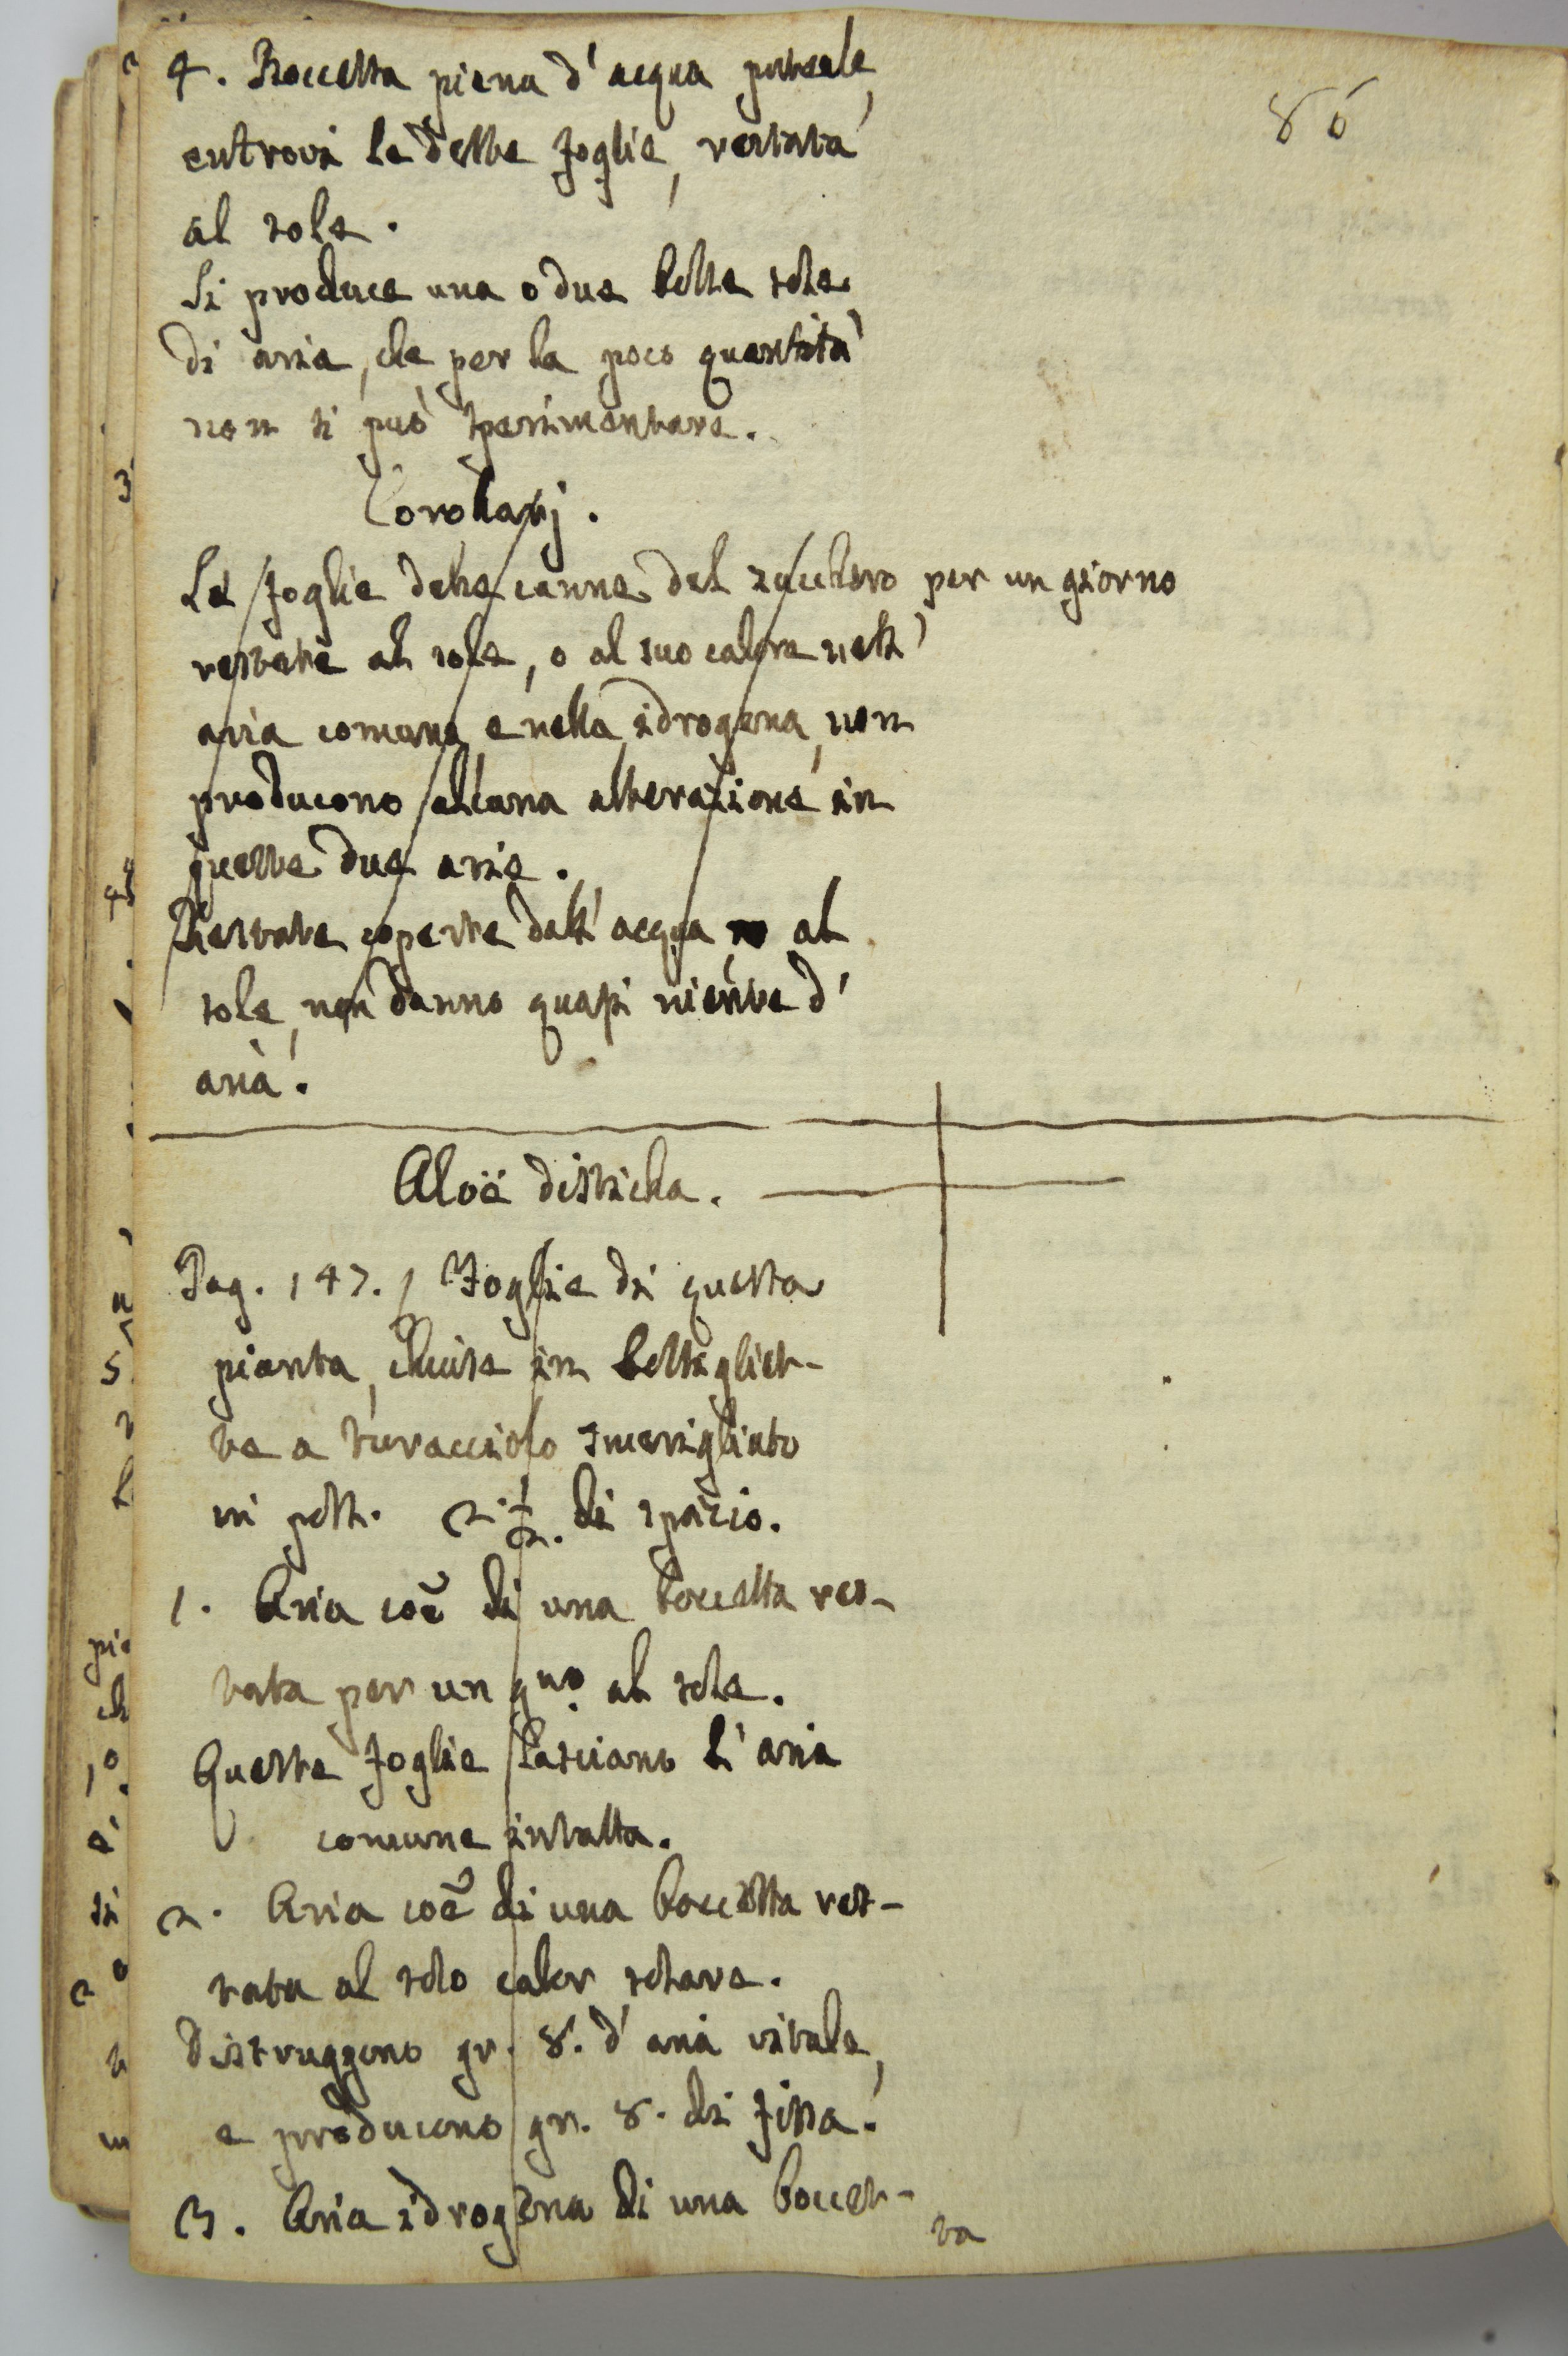 86
4. Boccetta piena d'acqua puteale,
entrovi le dette foglie, restata
al sole.
Si produce una o due bolle sole
di aria, che per la poco quantità
non si può sperimentare.
Corollarj.
Le foglie delle canne del zucchero per un giorno
restate al sole, o al suo calore nell'
aria comune e nella idrogena, non
producono alcuna alterazione in
queste due arie.
Restate coperte dall'acqua al
sole, non danno quasi niente d'
aria.
Aloë disticha.
Pag. 147. Foglie di questa
pianta, chiuse in bottigliet-
te a turacciolo smerigliato
in poll. 2.½. di spazio.
1. Aria coē di una boccetta res-
tata per un gno. al sole.
Queste foglie lasciano l'aria
comune intatta.
2. Aria coē di una boccetta res-
tata al solo calor solare.
Distruggono gr. 8. d'aria vitale,
e producono gr. 8. di fissa.
3. Aria idrogena di una boccet-
ta